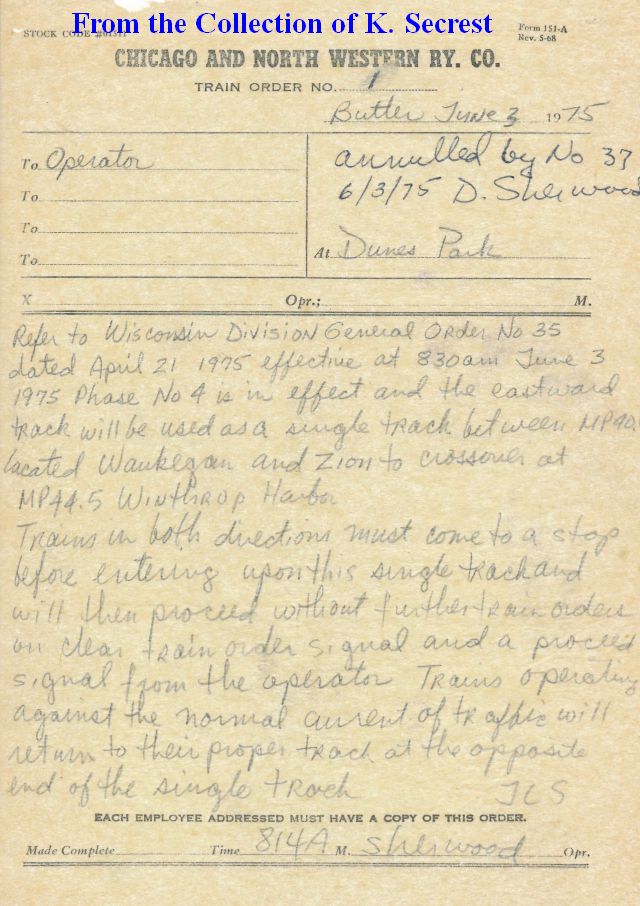 From the Collection of K. Secrest
STOCK CODE
Form 151-A
Rev. 5-68
CHICAGO AND NORTH WESTERN RY. CO.
TRAIN ORDER NO. 1
Butler June 3 1975
To Operator
To
To
To
annulled by No 37
6/3/75 D. Sherwood
At Dunes Park
X Opr.; M.
Refer to Wisconsin Division General Order No 35
dated April 21 1975 effective at 830am June 3
1975 Phase No 4 is in effect and the eastward
track will be used as a single track between MP40.
located Waukegan and Zion to crossover at
MP44.5 Winthrop Harbor
Trains in both directions must come to a stop
before entering upon this single track and
will then proceed without further train orders
on clear train order signal and a proceed
signal from the operator Trains operating
against the normal current of traffic will
return to their proper track at the opposite
end of the single track JCS
EACH EMPLOYEE ADDRESSED MUST HAVE A COPY OF THIS ORDER.
Made Complete Time 814A M. Sherwood Opr.